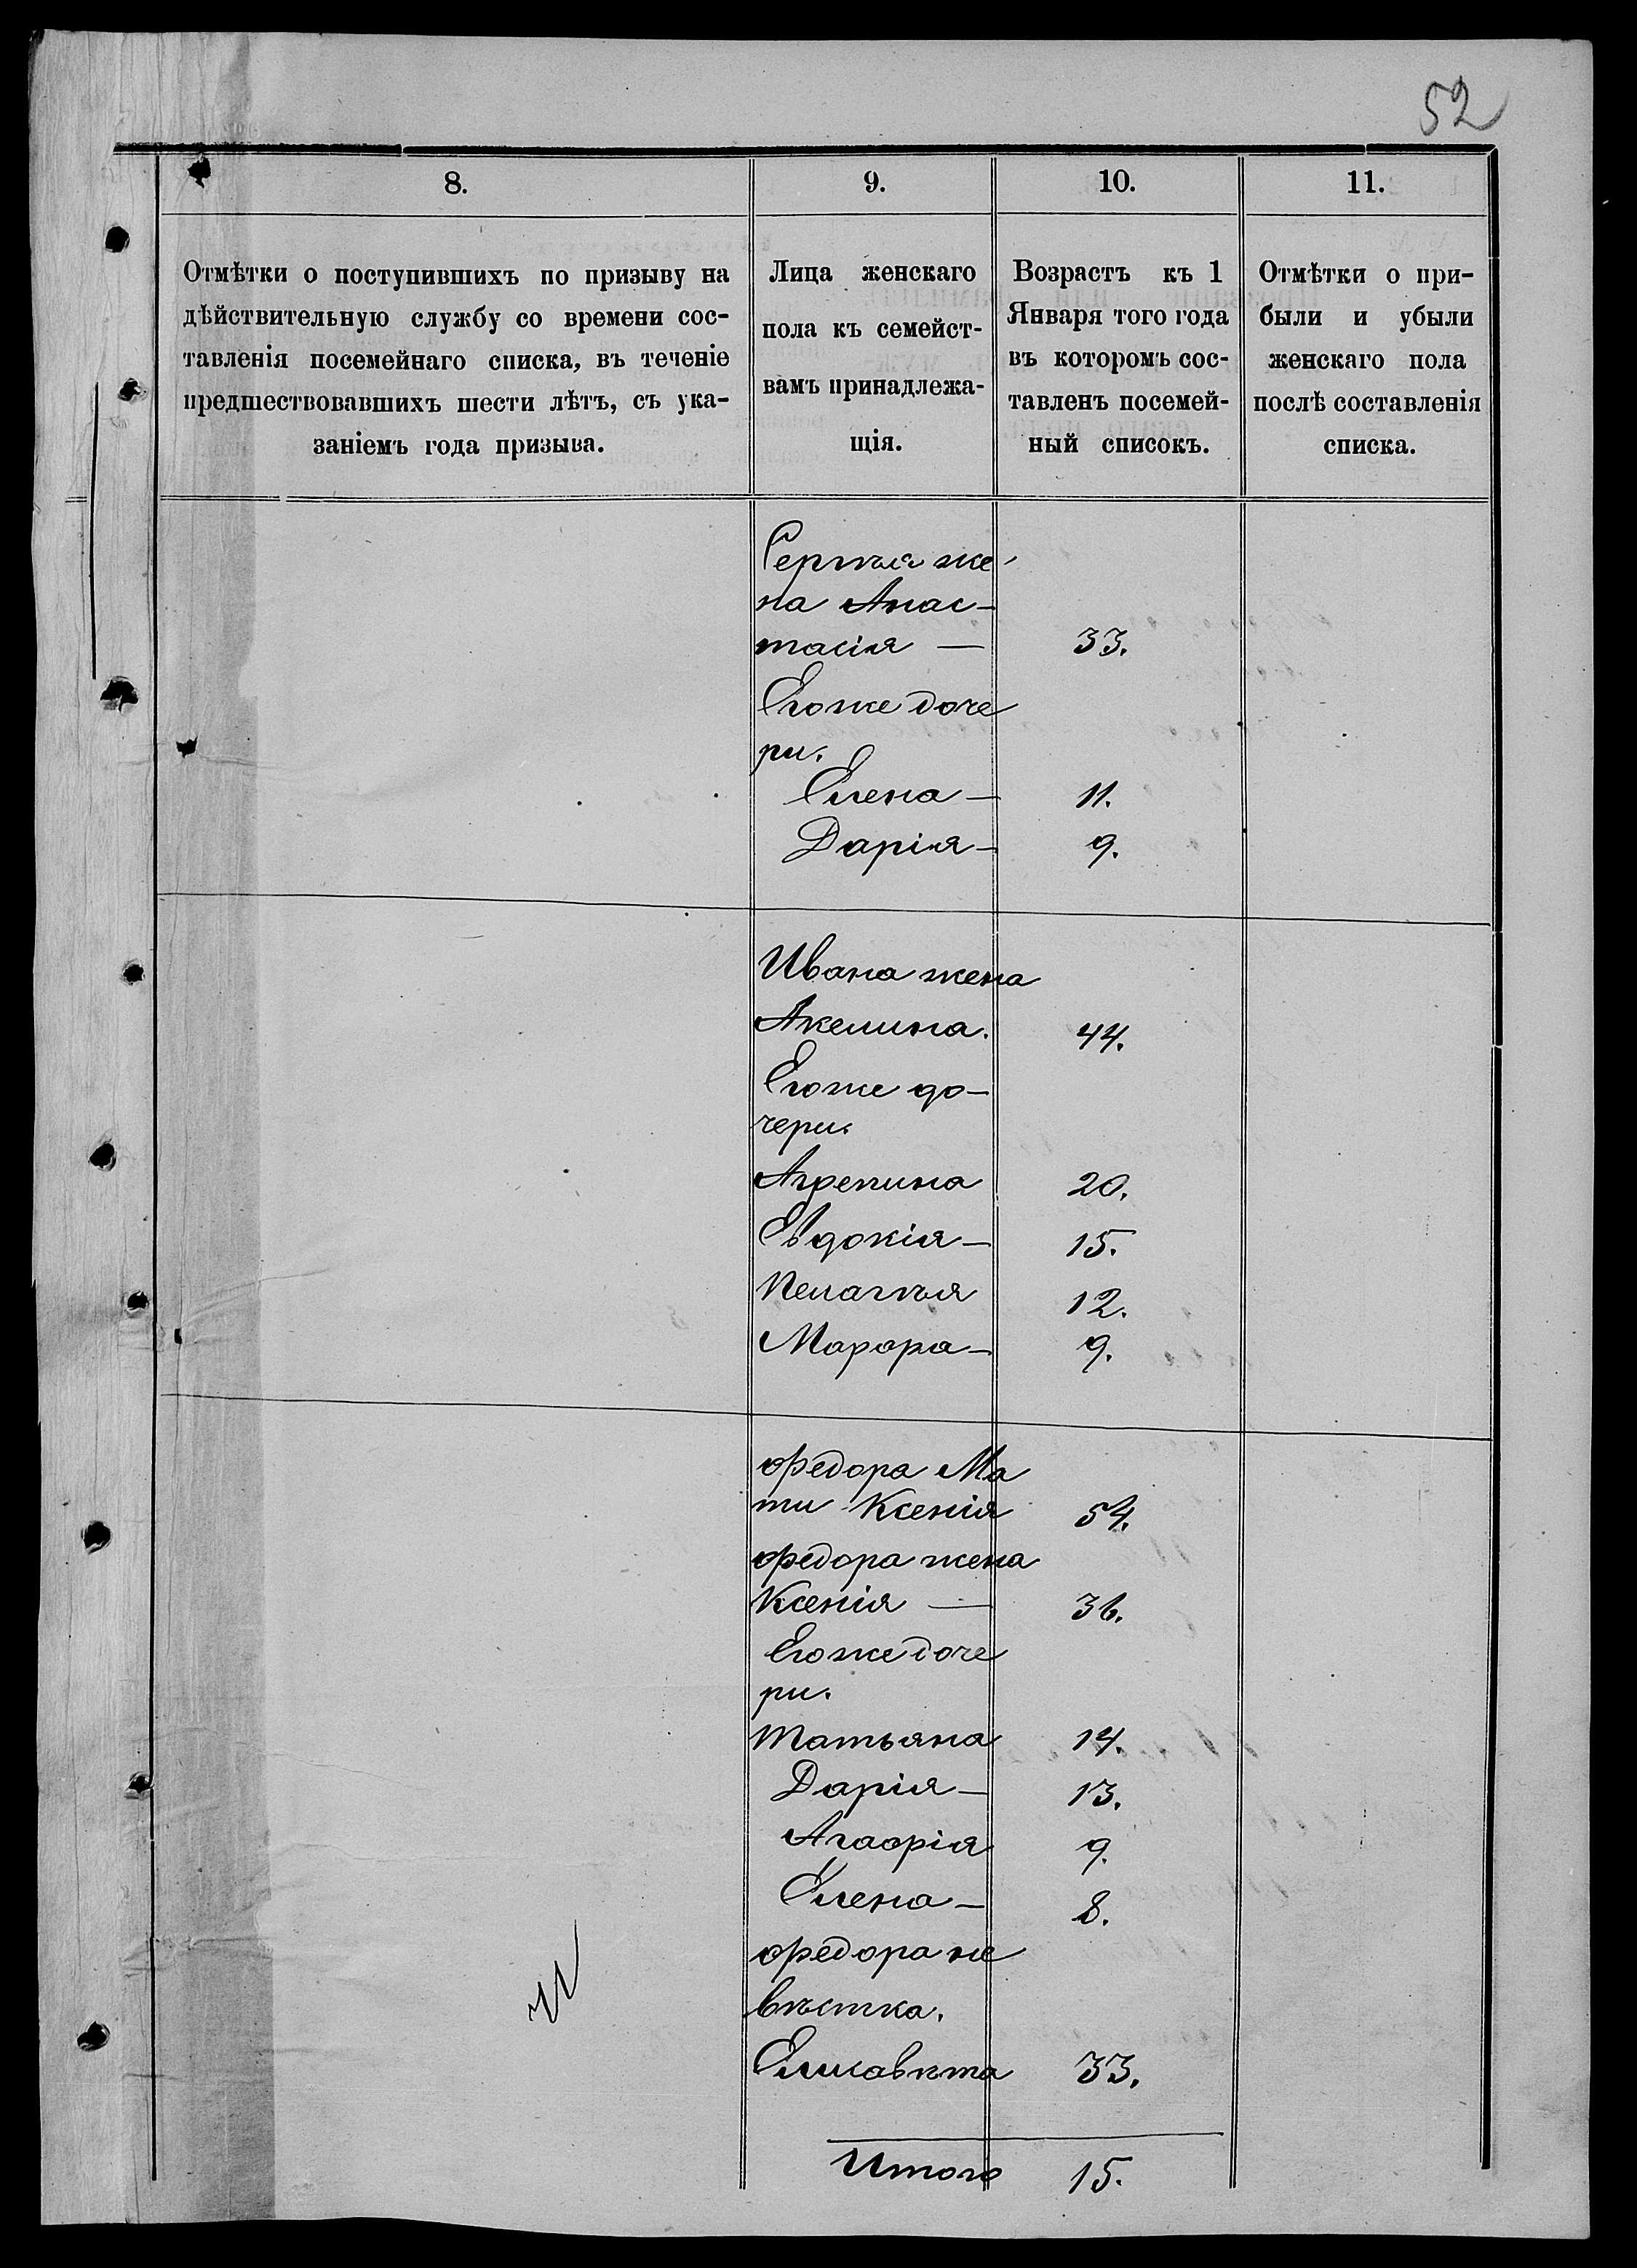 52
8.
9.
10.
11.
Отмѣтки о поступившихъ по призыву на
дѣйствительную службу со времени сос-
тавленія посемейнаго списка, въ теченіе
предшествовавшихъ шести лѣтъ, съ ука-
заніемъ года призыва.
Лица женскаго
пола къ семейст-
вамъ принадлежа-
щія.
Возрастъ къ 1
Января того года
въ которомъ сос-
тавленъ посемей-
ный списокъ.
Отмѣтки о при-
были и убыли
женскаго пола
послѣ составленія
списка.
Сергѣя же-
на Анас-
тасія — 33.
Егоже доче
ри.
Елена — 11.
Дарія — 9.
Ивана жена
Акелина. 44.
Егоже до-
чери.
Агрепина 20.
Евдокія — 15.
Пелагѣя 12.
Марфа — 9.
Ѳедора Ма
ти Ксенія 54.
Ѳедора жена
Ксенія — 36.
Егоже доче
ри.
Татьяна 14.
Дарія — 13.
Агафія 9.
Елена — 8.
Федора не
вѣстка.
Елисавѣта 33.
Итого 15.